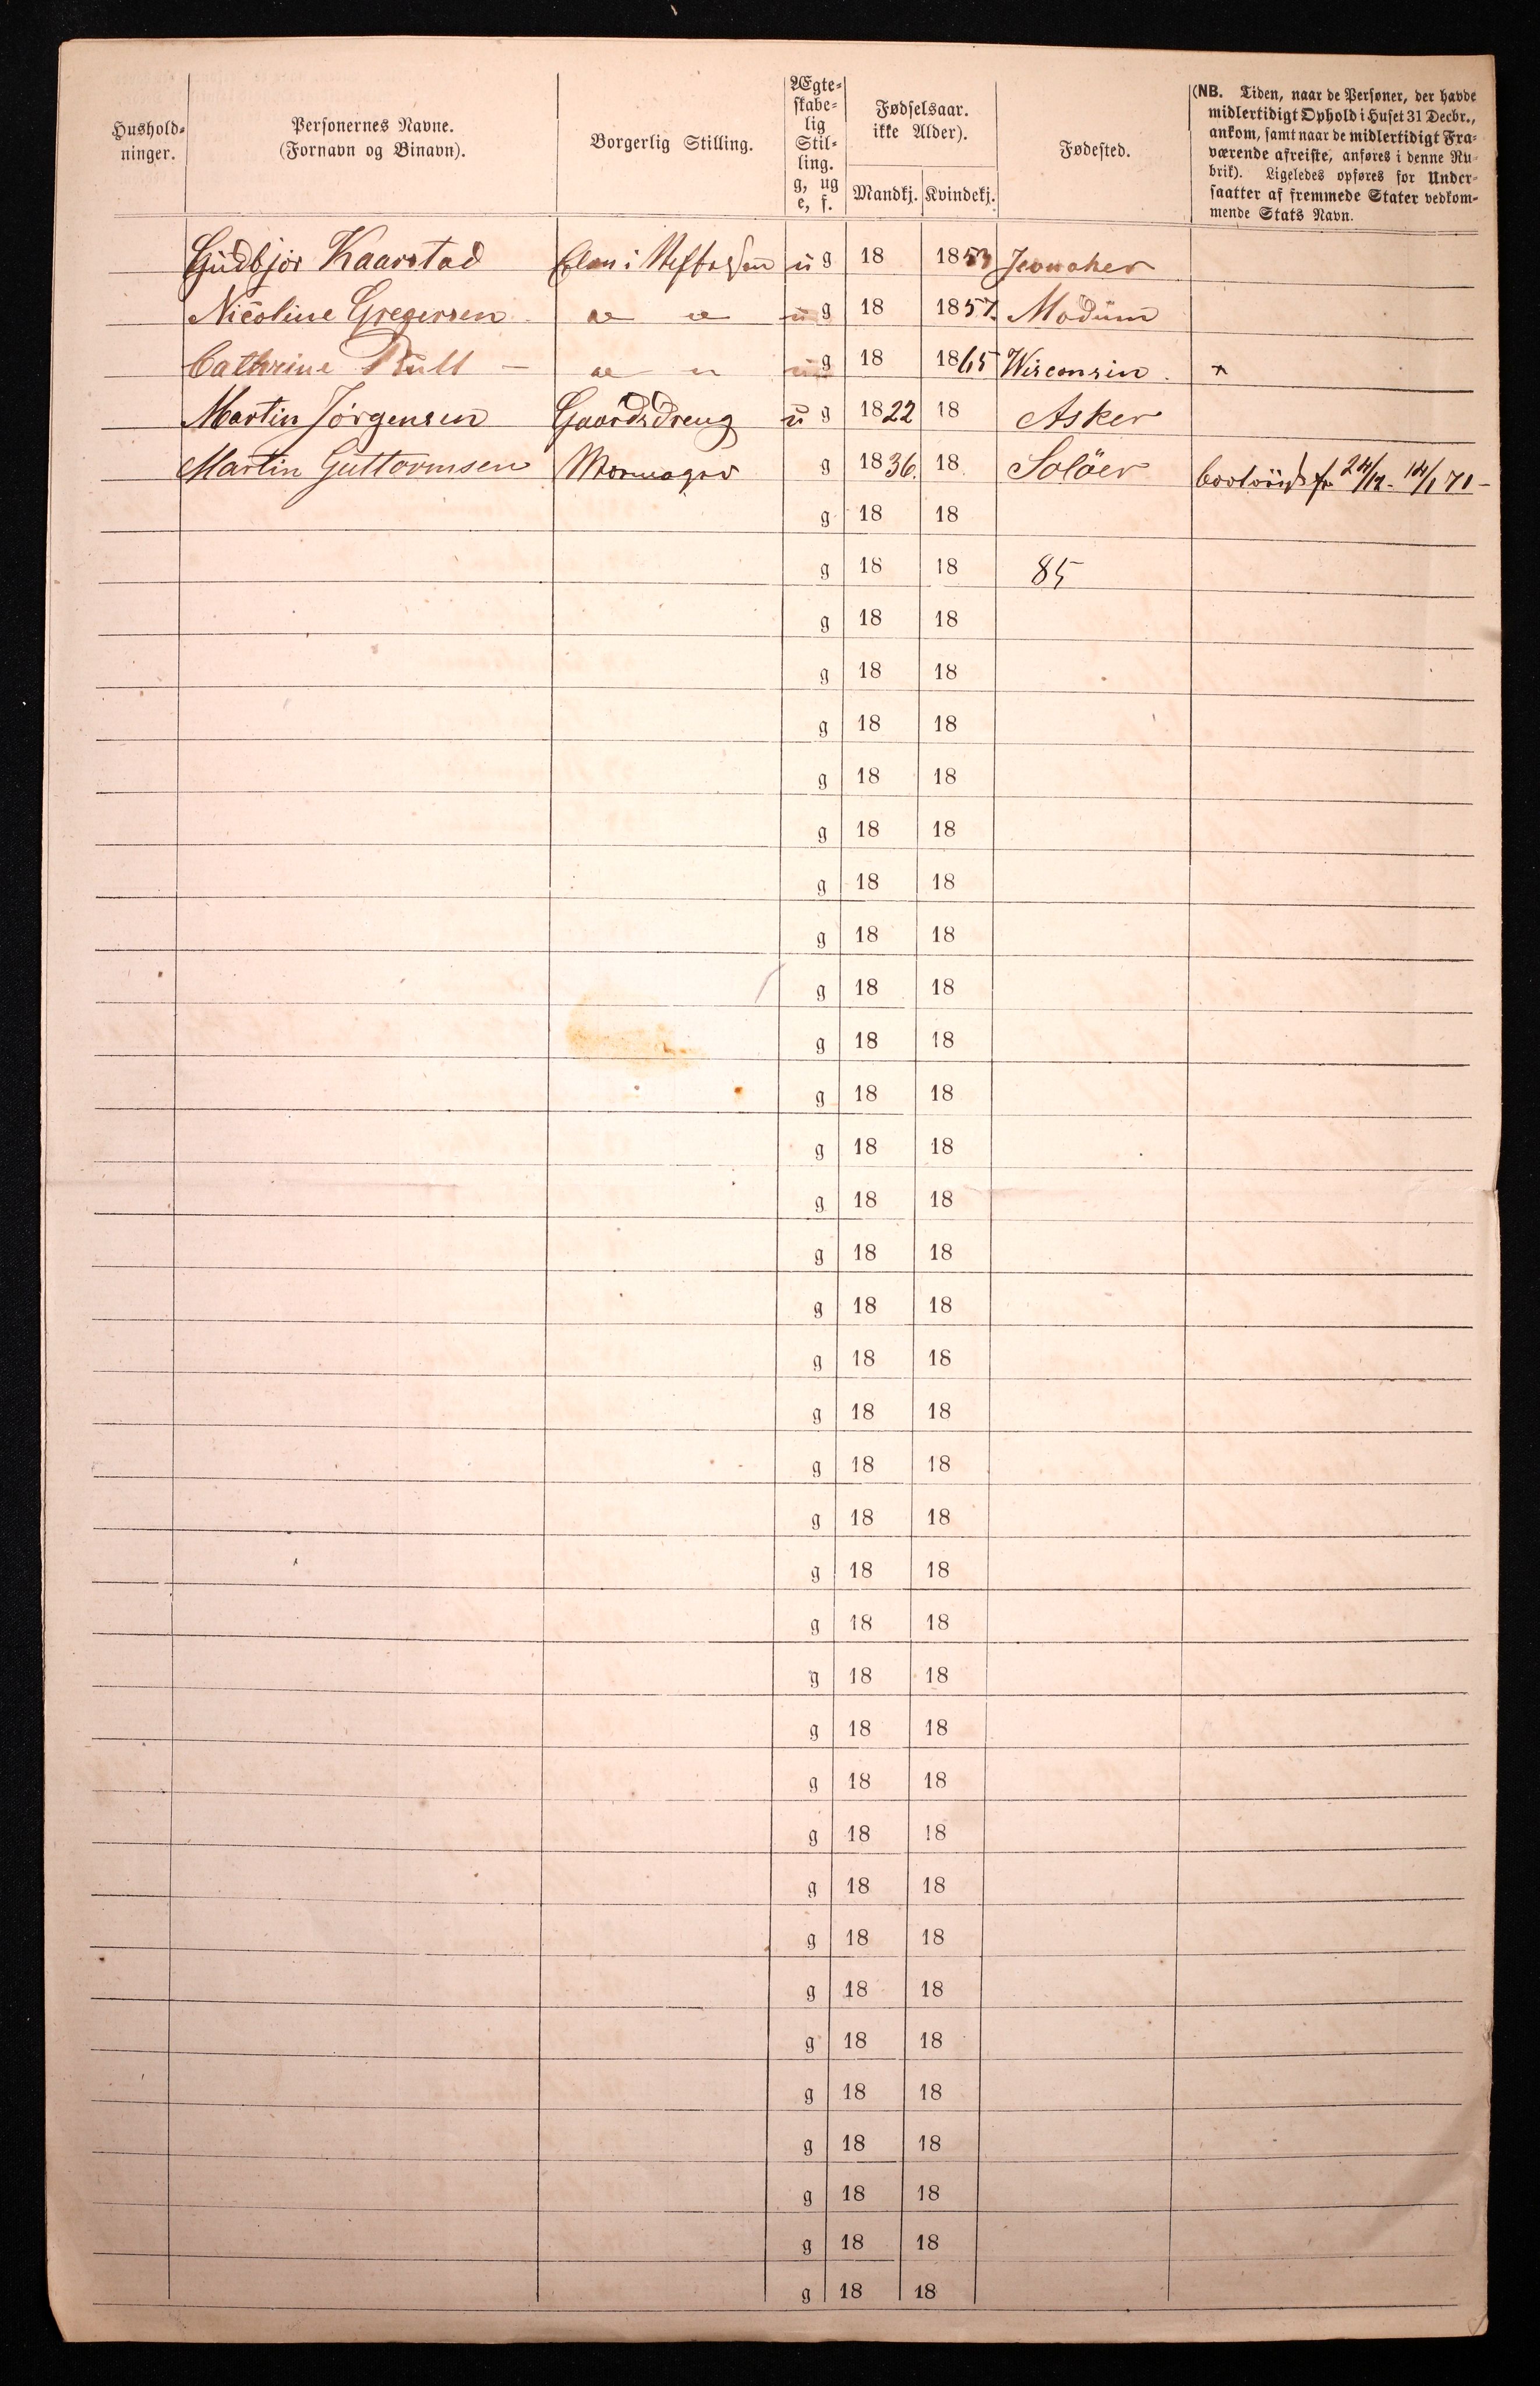 Hushold-
ninger.
Personernes Navne.
(Fornavn og Binavn).
Borgerlig Stilling.
Ægte-
skabe-
lig
Stil-
ling.
g, ug
e, f.
Fødselsaar.
ikke Alder).
Mandkj. Kvindekj.
Fødested.
(NB. Tiden, naar de Personer, der havde
midlertidigt Ophold i Huset 31 Decbr.,
ankom, samt naar de midlertidigt Fra-
værende afreiste, anføres i denne Ru-
brik). Ligeledes opføres for Under-
saatter af fremmede Stater vedkom-
mende Stats Navn.
Gudbjør Kaarstad Elev i ug 18 1853 Jevnaker
Nicoline Gregersen " " ug 18 1857. Modum
Cathrine " " ug 18 1865 Wisconsin.
Martin Jørgensen Gaardsdreng ug 1822 18 Asker
Martin Guttormsen g 1836. 18 Soløer 24/12 - 14/1 71 -
g 18 18
g 18 18 85
g 18 18
g 18 18
g 18 18
g 18 18
g 18 18
g 18 18
g 18 18
g 18 18
g 18 18
g 18 18
g 18 18
g 18 18
g 18 18
g 18 18
g 18 18
g 18 18
g 18 18
g 18 18
g 18 18
g 18 18
g 18 18
g 18 18
g 18 18
g 18 18
g 18 18
g 18 18
g 18 18
g 18 18
g 18 18
g 18 18
g 18 18
g 18 18
g 18 18